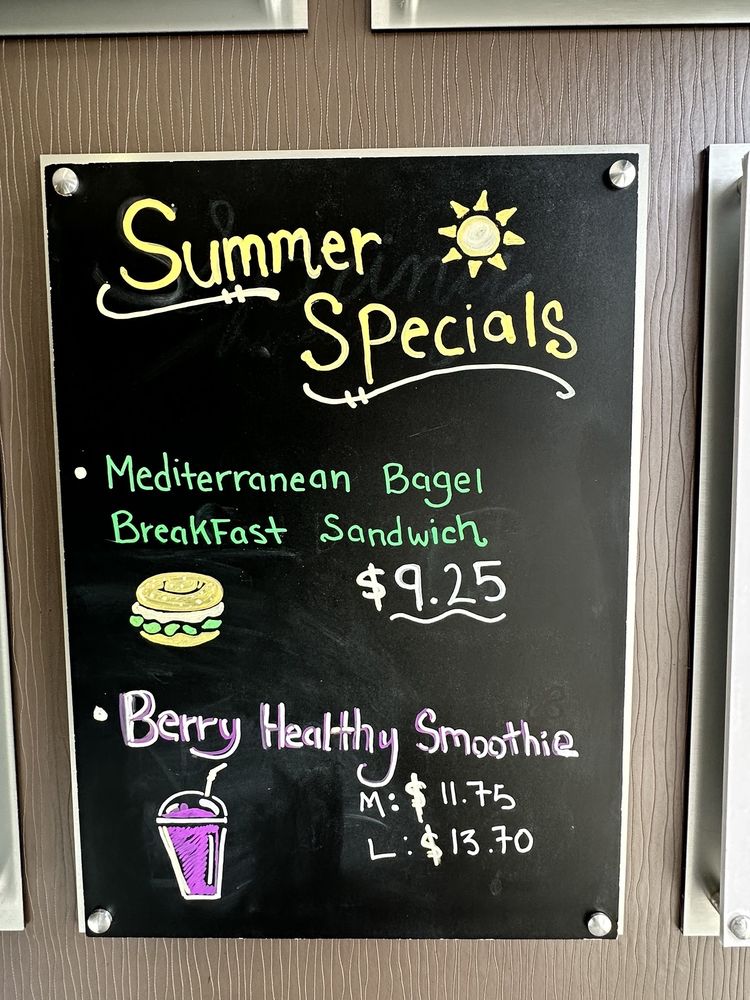 Summer
Specials
• Mediterranean Bagel
BreakFast Sandwich
$9.25
• Berry Healthy Smoothie
M: $ 11.75
L: $ 13.70